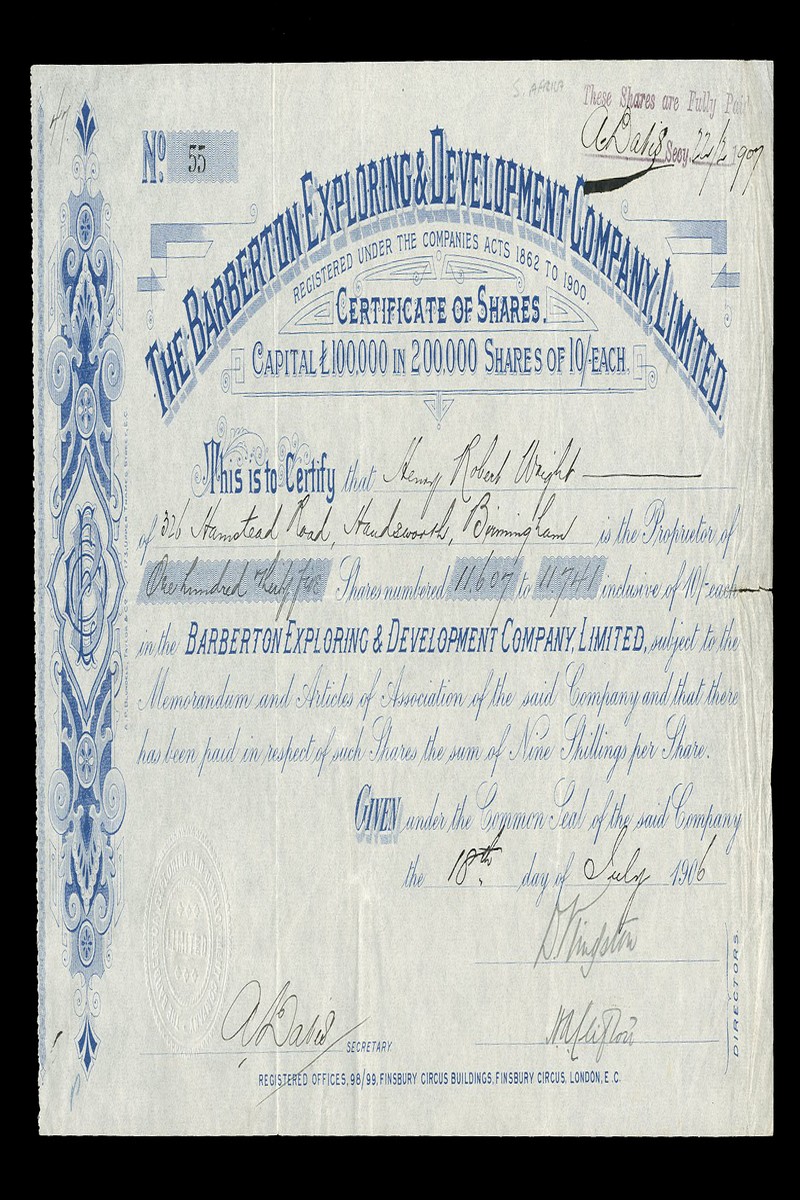 S. AFRICA
These Shares are Fully Paid
A Davis Secy. 22/2 1907
No 55
THE BARBERTON EXPLORING & DEVELOPMENT COMPANY, LIMITED.
REGISTERED UNDER THE COMPANIES ACTS 1862 TO 1900.
CERTIFICATE OF SHARES.
CAPITAL £100,000 IN 200,000 SHARES OF 10/- EACH.
This is to Certify that Henry Robert Wright
of 326 Hamstead Road, Handsworth, Birmingham is the Proprietor of
One hundred thirty five Shares numbered 11,607 to 11,741 inclusive of 10/- each
in the BARBERTON EXPLORING & DEVELOPMENT COMPANY, LIMITED, subject to the
Memorandum and Articles of Association of the said Company and that there
has been paid in respect of such Shares the sum of Nine Shillings per Share.
GIVEN under the Common Seal of the said Company
the 18th day of July 1906
D Kingston
A Davis SECRETARY.
DIRECTORS.
REGISTERED OFFICES, 98/99, FINSBURY CIRCUS BUILDINGS, FINSBURY CIRCUS, LONDON, E.C.
LIMITED